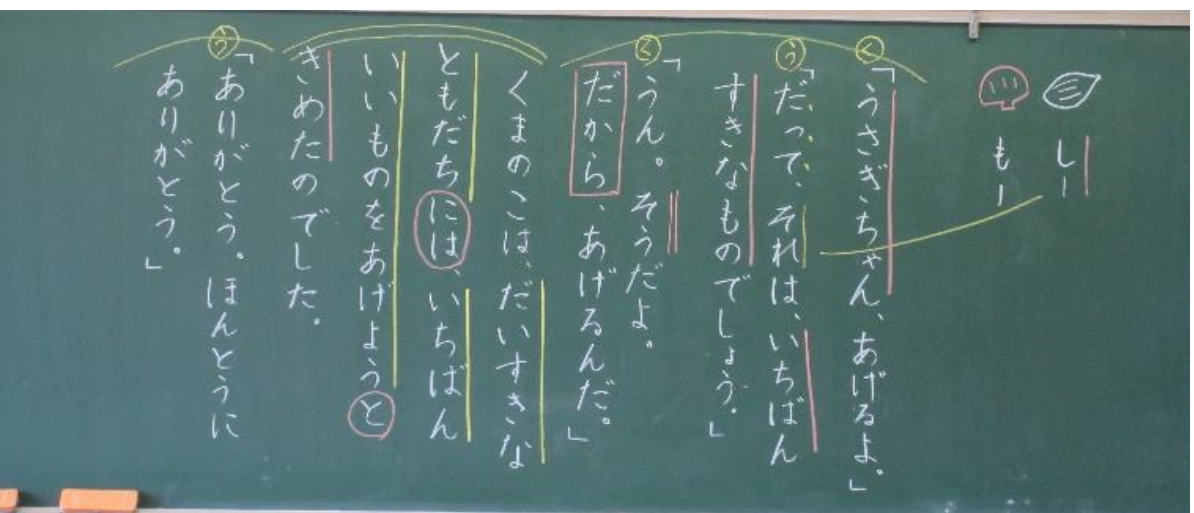 しー
もー
く「うさぎちゃん、あげるよ。」
う「だって、それは、いちばん
すきなものでしょう。」
く「うん。そうだよ。
だから、あげるんだ。」
くまのこは、だいすきな
ともだちには、いちばん
いいものをあげようと
きめたのでした。
う「ありがとう。ほんとうに
ありがとう。」